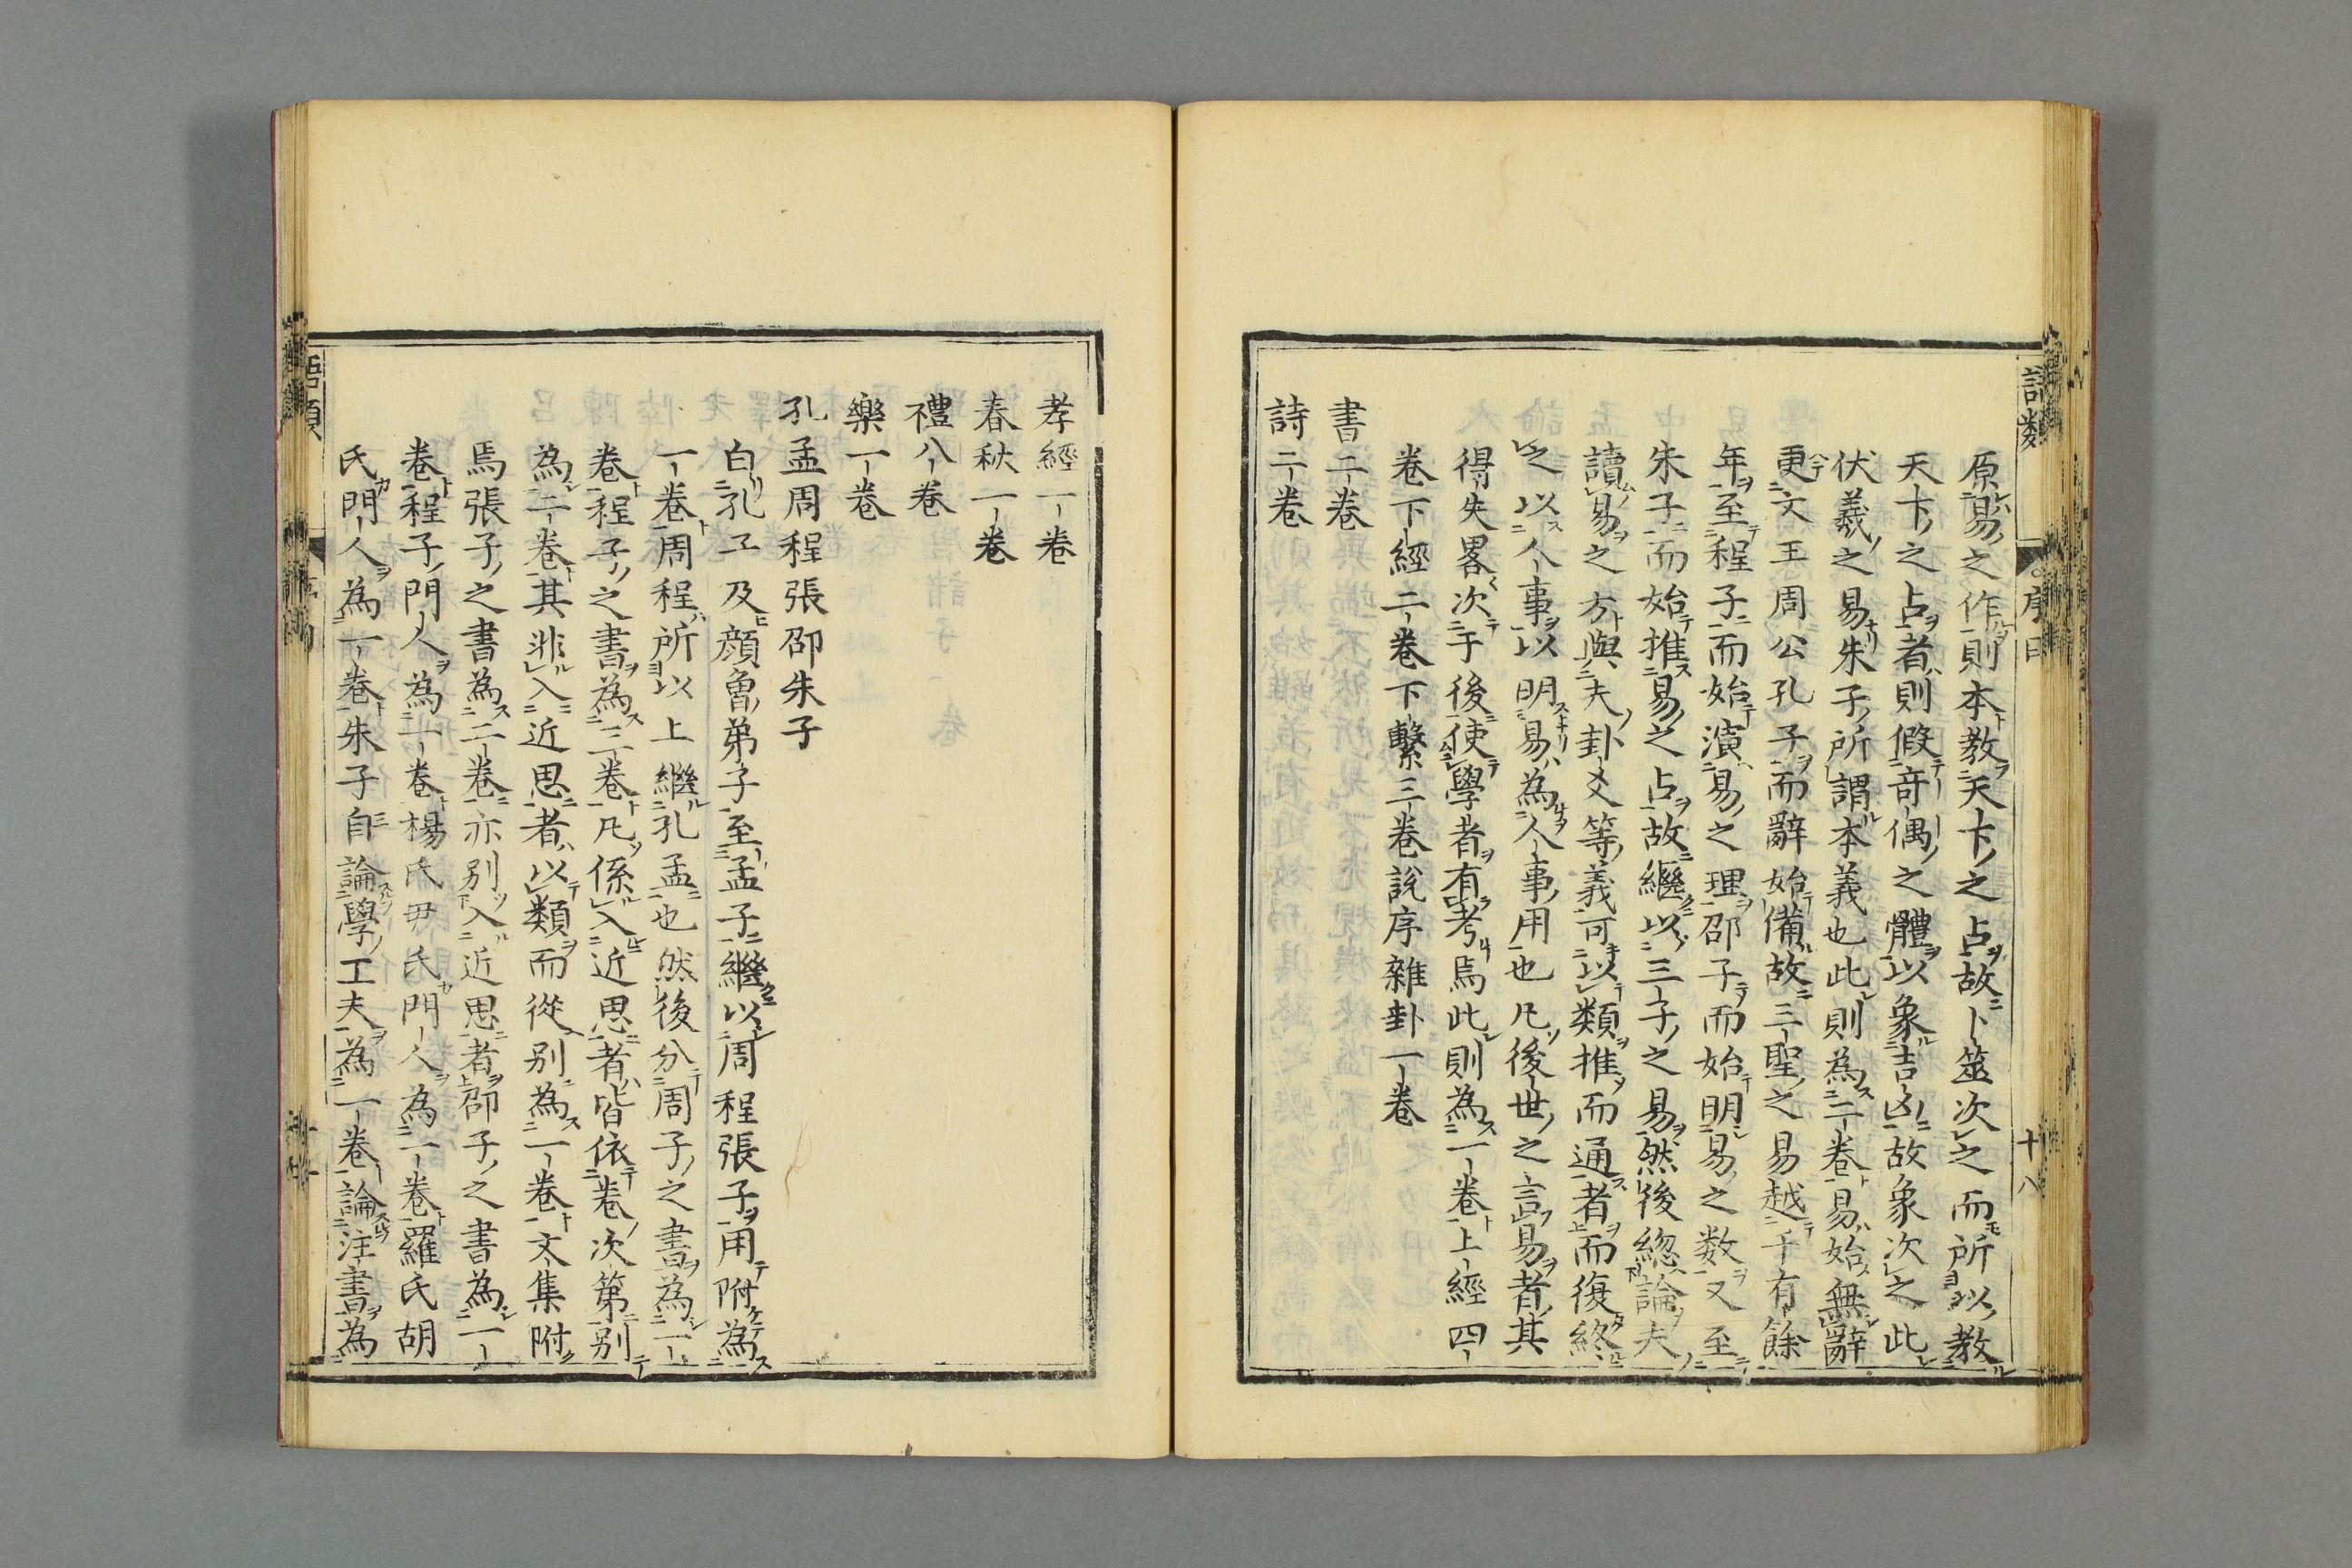 原易之作則本教天下之占故卜筮次之而所以教
天下之占者則假竒偶之體以象吉凶故象次之此
伏羲之易朱子所謂本義也此則為二卷易始無辭
更文王周公孔子而辭始備故三聖之易越千有餘
年至程子而始演易之理邵子而始明易之数又至
朱子而始推易之占故繼以三子之易然後緫論夫
讀易之方與夫卦爻等義可以類推而通者而復終
之以人事以明易為人事用也凡後世之言易者其
得失畧次于後使學者有考焉此則為一卷上經四
卷下經二卷下繫三卷說序雜卦一卷
書二卷
詩二卷
孝經一卷
春秋一卷
禮八卷
樂一卷
孔孟周程張邵朱子
白孔子及顔魯弟子至孟子繼以周程張子用附為
一卷周程所以上繼孔孟也然後分周子之書為一
卷程子之書為三卷凡係入近思者皆依卷次第别
為二卷其非入近思者以類而從别為一卷文集附
焉張子之書為二卷亦别入近思者邵子之書為一
卷程子門人為一卷楊氏尹氏門人為一卷羅氏胡
氏門人為一卷朱子自論學工夫為一卷論注書為
語類
序目
十八